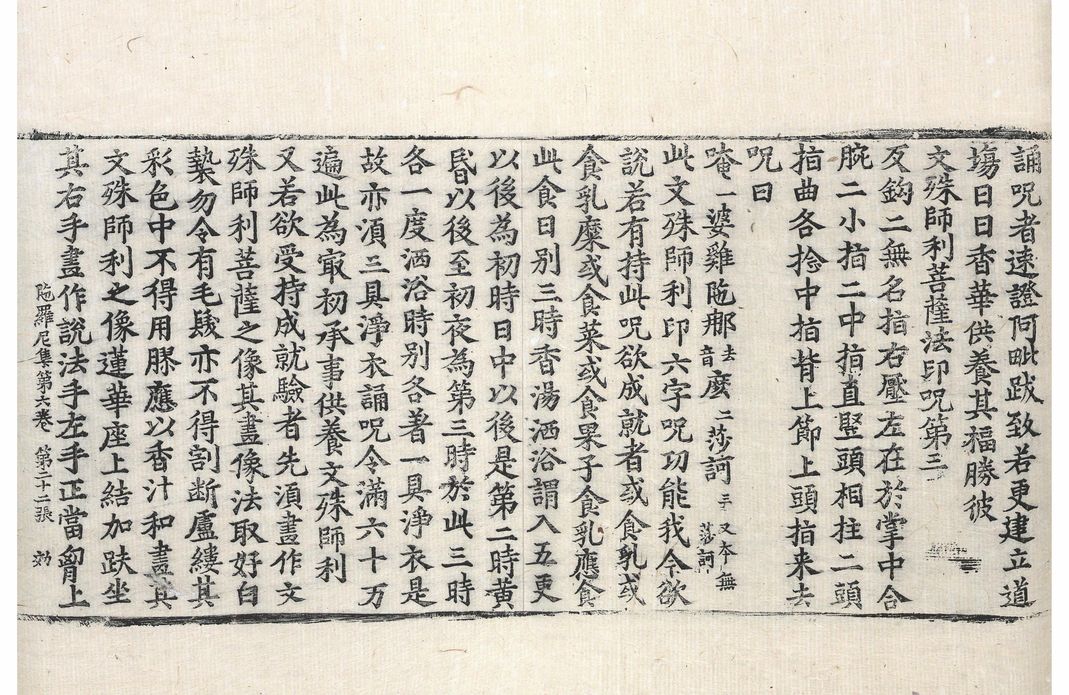 誦呪者速證阿毗跋致若更建立道
塲日日香華供養其福勝彼
文殊師利菩薩法印呪第三
反鉤二無名指右壓左在於掌中合
腕二小指二中指直竪頭相拄二頭
指曲各捻中指背上節上頭指来去
呪曰
唵一婆雞陁那去音麼二莎訶三又本無莎訶
此文殊師利印六字呪功能我今欲
說若有持此呪欲成就者或食乳或
食乳糜或食菜或食果子食乳應食
此食日別三時香湯洒浴謂入五更
以後為初時日中以後是第二時黄
昏以後至初夜為第三時於此三時
各一度洒浴時別各著一具淨衣是
故亦須三具淨衣誦呪令滿六十万
遍此為㝡初承事供養文殊師利
又若欲受持成就驗者先須畫作文
殊師利菩薩之像其畫像法取好白
㲲勿令有毛髮亦不得割断盧縷其
彩色中不得用膠應以香汁和畫其
文殊師利之像蓮華座上結加趺坐
陁羅尼集第六卷 第二十二張 効
其右手畫作說法手左手正當胷上